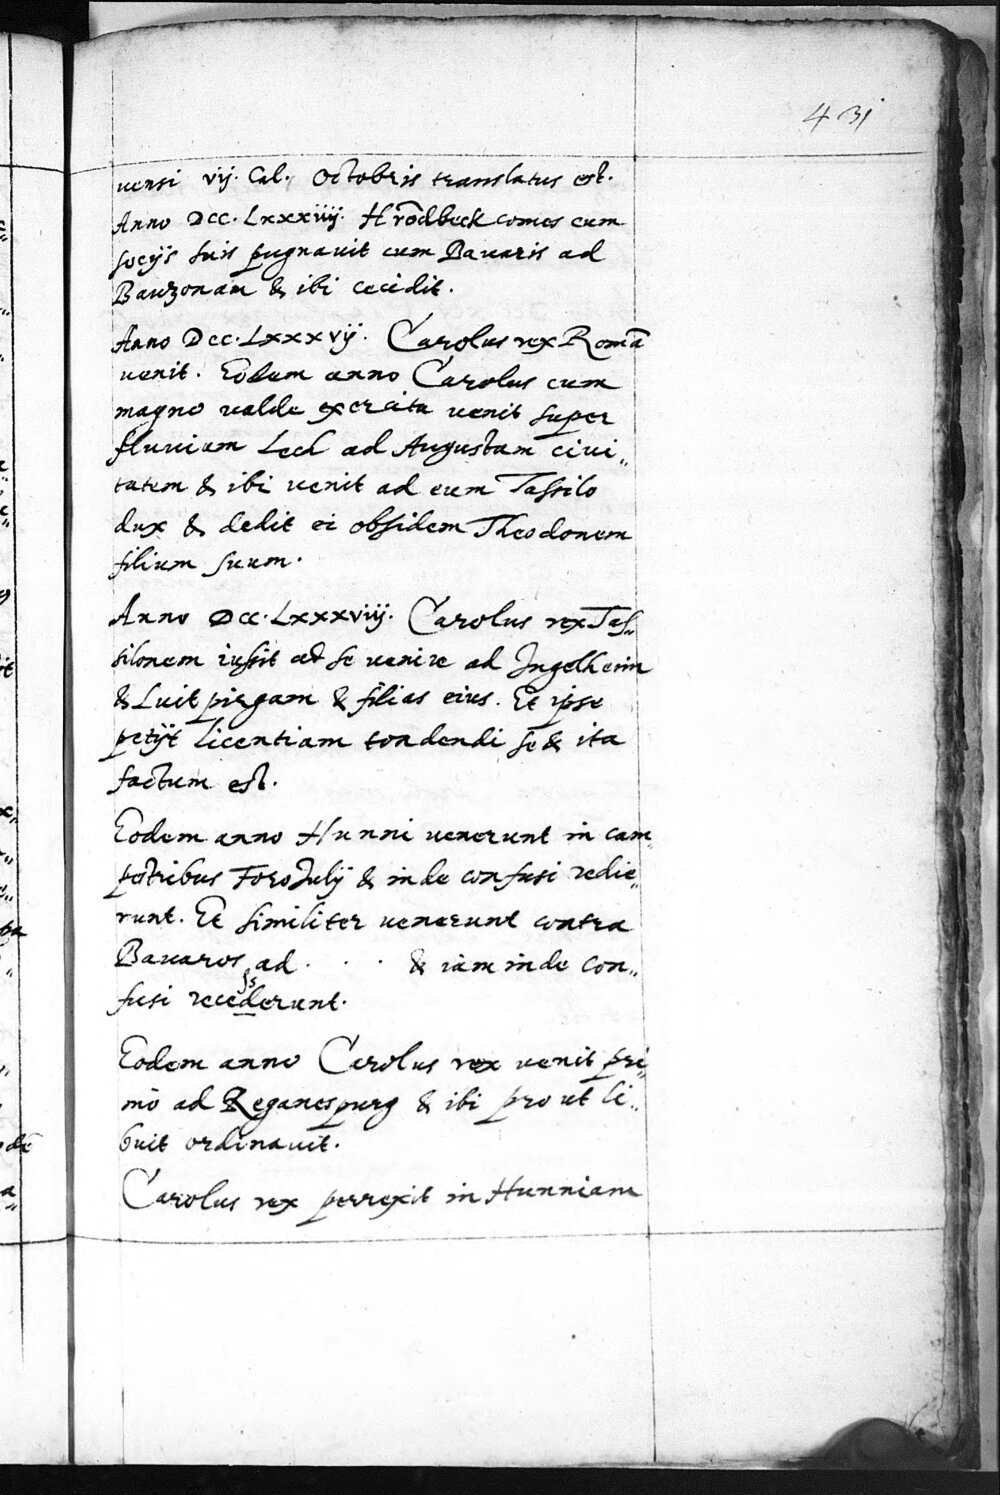 431
uensi vij. Cal. Octobris translatus est.
Anno DCC. LXXXIIIJ. Hrōdbeck comes cum
socijs suis pugnauit cum Bauaris ad
Bauzonam & ibi cecidit.
Anno DCC. LXXXVIJ. Carolus rex Romā
uenit. Eodem anno Carolus cum
magno ualde exercitu uenit super
fluuium Lech ad Augustam ciui„
tatem & ibi uenit ad eum Tassilo
dux & dedit ei obsidem Theodonem
filium suum.
Anno DCC. LXXXVIIJ. Carolus rex Tas„
silonem iussit ad se uenire ad Ingelheim
& Luitpirgam & filias eius. Et ipse
petijt licentiam tondendi se & ita
factum est.
Eodem anno Hunni uenerunt in cam„
pestribus Foro Julij & inde confusi redie„
runt. Et similiter uenerunt contra
Bauaros ad . . . & iam inde con„
fusi recederunt.
ss
Eodem anno Carolus rex uenit pri„
mò ad Reganespurg & ibi prout li„
buit ordinauit.
Carolus rex perrexit in Hunniam